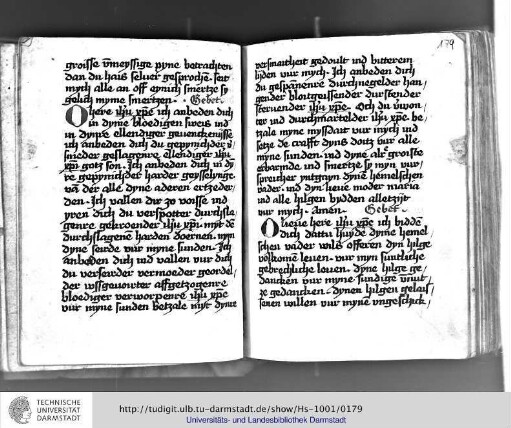 groisse vmeyssige pyne betrachten
dan du hais selver gesprochen seit
mych alle an off eynich smertze sy
gelich myme smertzen. Gebet.
O here ihu xpe ich anbeden dich
in dyme bloedigen sweis und
in dynre ellendiger gevencknisse
ich anbeden dich du
geslagenre ellendiger ihu
xpu gotz son. Ich anbeden dich in
harder geysselunge
van der alle dyne aderen
den. Ich vallen dir zo voisse und
yren dich du verspotter durchsla
genre gekroender ihu xpu. myt
durchslagene harden doernen. mym
dyne sierde vur myne sunden. Ich
anbeden dich und vallen vur dich
du verseirder vermoeder
der affgetzogenre
bloediger verworpenre ihu xpe
vur myne sunden betzale myt dynre
179
versmaitheit gedoult und bitterem
lijden vur mych. Ich anbeden dich
du gespannenre durchnegelder han
gender bloitgeissender durstender
steruender ihu xpe. Och du
ter und durchmartelder ihu xpe. be
tzale myne myssdait vur mych und
setze de crafft dyns doitz vur alle
myne sunden. und dyne groisse
erbarmde und smertze sy myn vur
sprecher yntgayn dynen hemelschen
vader. und dyn lieve moder maria
und alle hilgen bydden alletzijt
vur mych. Amen. Gebet.
O lieve here ihu xpe ich bidden
dich dattu huyde dyme hemel
schen vader wils offeren dyn hilge
volkomen leven. vur myn suntliche
gebrechliche leven. dyne hilge ge
dancken vur myne sundige
ze gedancken. dynen hilgen gelais
senen willen vur myne ungeschick
TECHNISCHE
UNIVERSITÄT
DARMSTADT
http://tudigit.ulb.tu-darmstadt.de/show/Hs-1001/0179
Universitäts- und Landesbibliothek Darmstadt